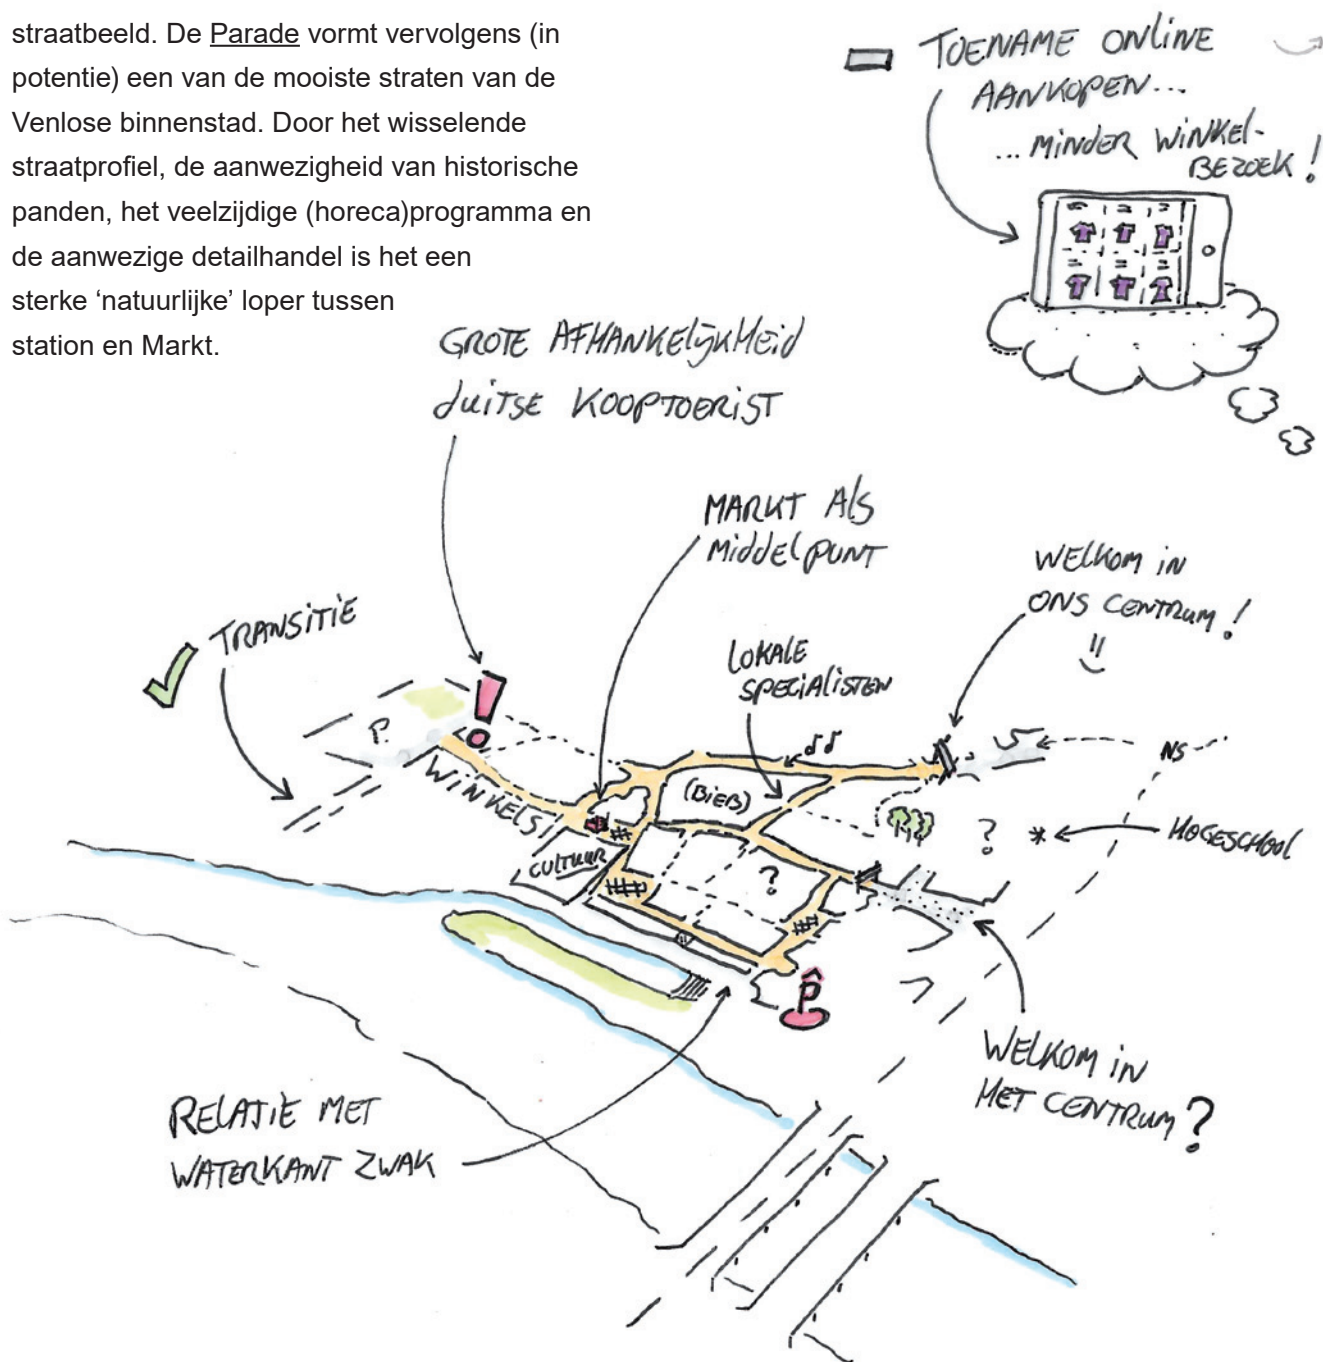 straatbeeld. De Parade vormt vervolgens (in
potentie) een van de mooiste straten van de
Venlose binnenstad. Door het wisselende
straatprofiel, de aanwezigheid van historische
panden, het veelzijdige (horeca)programma en
de aanwezige detailhandel is het een
sterke ‘natuurlijke’ loper tussen
station en Markt.
TOENAME ONLINE
AANKOPEN...
...MINDER WINKEL-
BEZOEK!
GROTE AFHANKELIJKHEID
DUITSE KOOPTOERIST
MARKT ALS
MIDDELPUNT
WELKOM IN
ONS CENTRUM!
TRANSITIE
LOKALE
SPECIALISTEN
P.
WINKELS!
(BIEB)
NS
CULTUUR
?
?
*
HOGESCHOOL
P
WELKOM IN
HET CENTRUM?
RELATIE MET
WATERKANT ZWAK